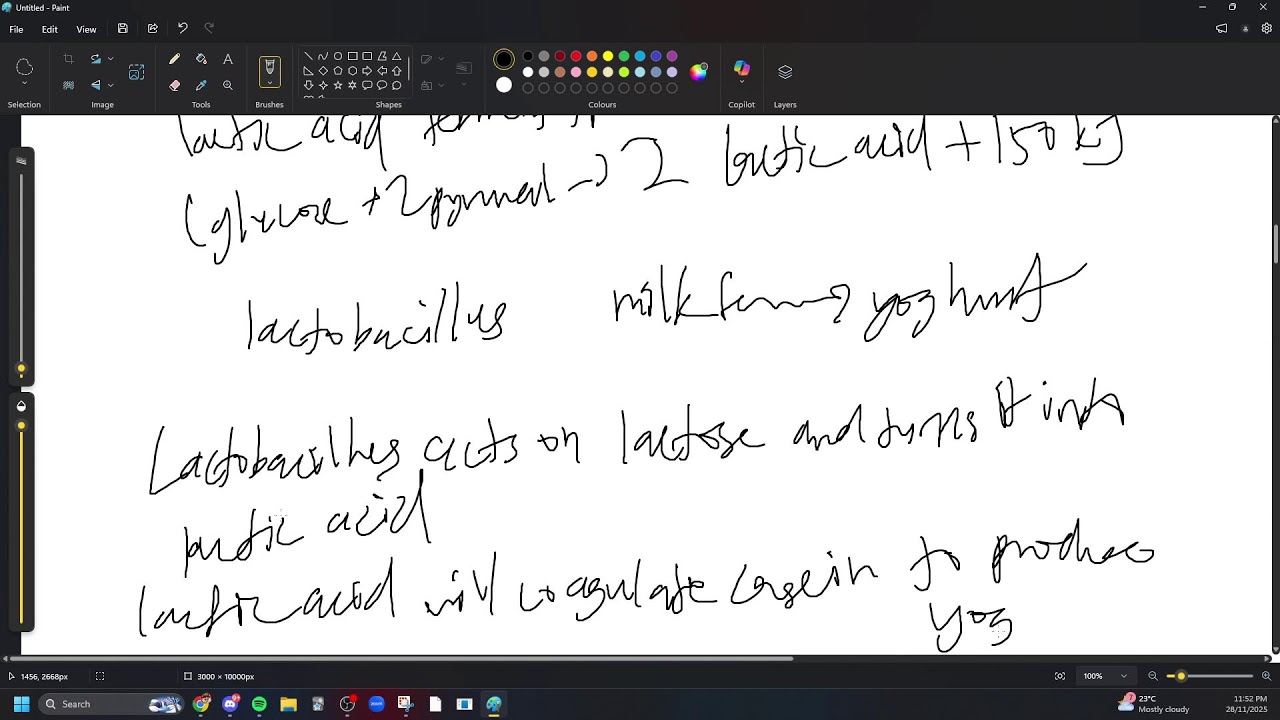 Untitled - Paint
File Edit View
Selection Image Tools Brushes Shapes Colours Copilot Layers
lactic acid
(glucose + 2 → 2 lactic acid + 150 kJ
lactobacillus milk ferm → yoghurt
Lactobacillus acts on lactose and turns it into
lactic acid
lactic acid will coagulate casein to produce
yog
1456, 2668px 3000 × 10000px 100%
Search
23°C
Mostly cloudy
11:52 PM
28/11/2025